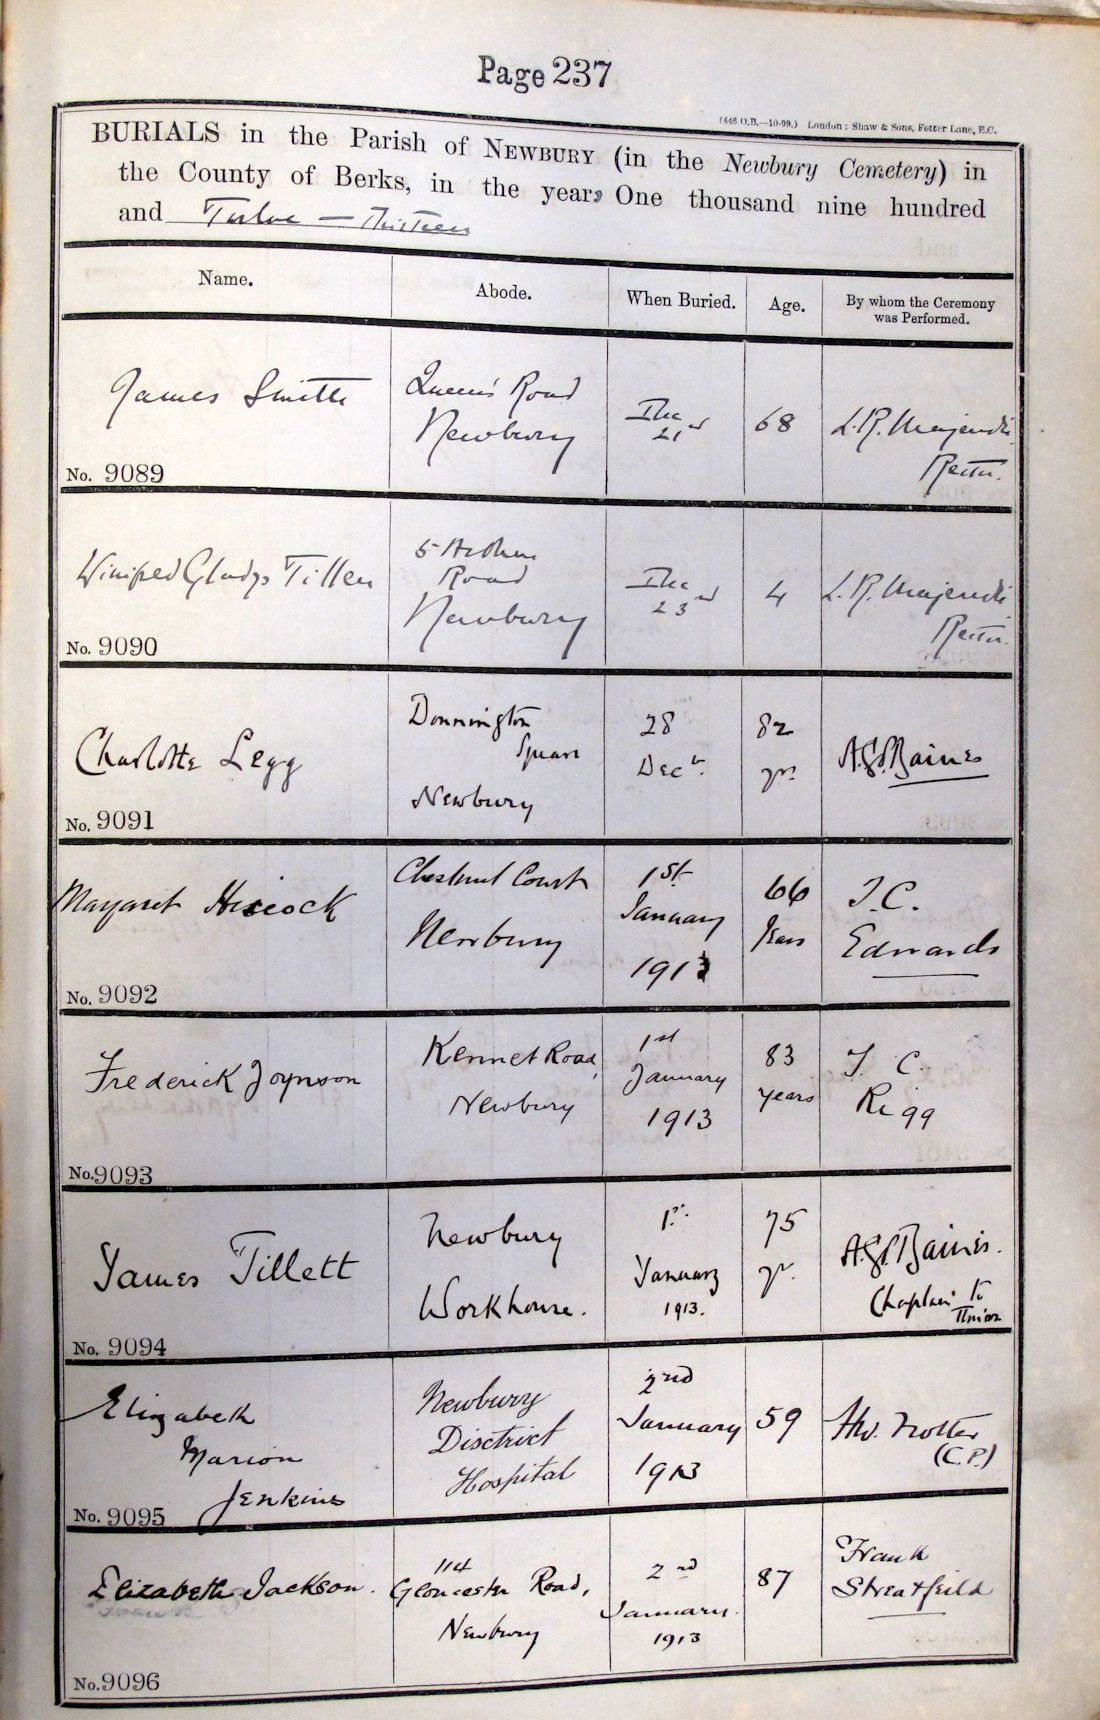 Page 237
(446 O.B.—10-99.) London: Shaw & Sons, Fetter Lane, E.C.
BURIALS in the Parish of NEWBURY (in the Newbury Cemetery) in
the County of Berks, in the years One thousand nine hundred
and Twelve — Thirteen
Name.
Abode.
When Buried.
Age.
By whom the Ceremony
was Performed.
James Smith
Queen's Road
Newbury
Dec
21st
68
L.R. Majendie
Rector.
No. 9089
Winifred Gladys Tillen
5 Arthur
Road
Newbury
Dec
23rd
4
L.R. Majendie
Rector.
No. 9090
Charlotte Legg
Donnington
Square
Newbury
28
Decr.
82
yrs.
Baines
No. 9091
Margaret Hiscock
Chestnut Court
Newbury
1st
January
1913
66
Years
T.C.
Edwards
No. 9092
Frederick Joynson
Kennet Road,
Newbury
1st
January
1913
83
years
T. C.
Rigg
No. 9093
James Tillett
Newbury
Workhouse.
1st.
January
1913.
75
yr.
Baines.
Chaplain to
Union
No. 9094
Elizabeth
Marion
Jenkins
Newbury
Disctrict
Hospital
2nd
January
1913
59
Trotter
(C.P.)
No. 9095
Elizabeth Jackson.
114
Gloucester Road,
Newbury
2nd
January.
1913
87
Frank
Streatfeild
No. 9096